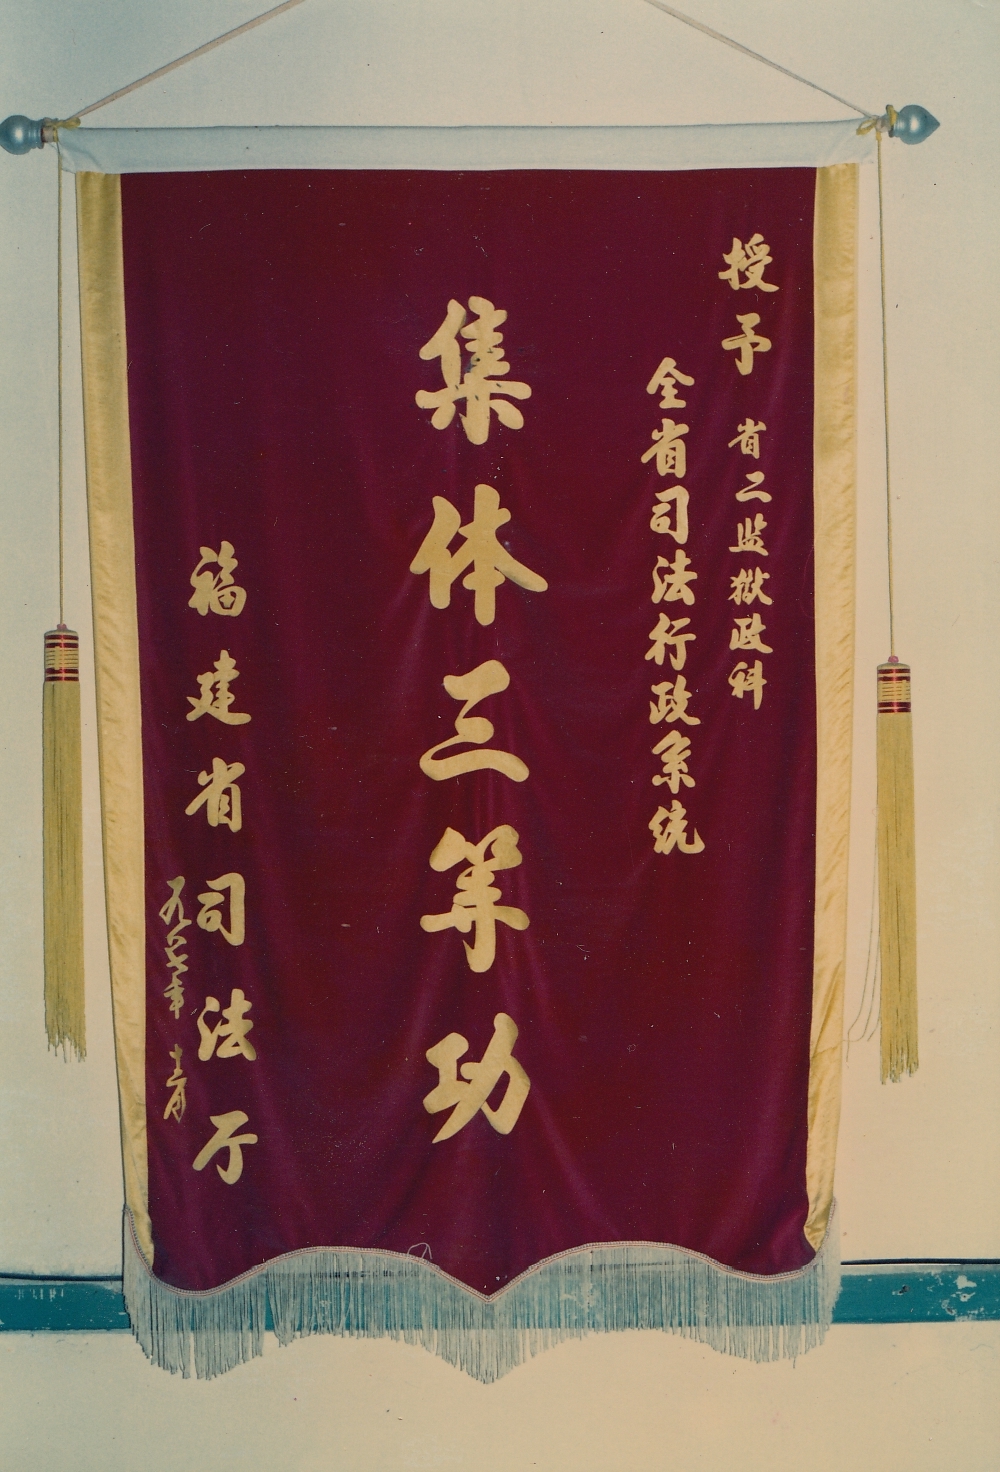 授予 省二监狱政科
全省司法行政系统
集体三等功
福建省司法厅
一九八七年 月